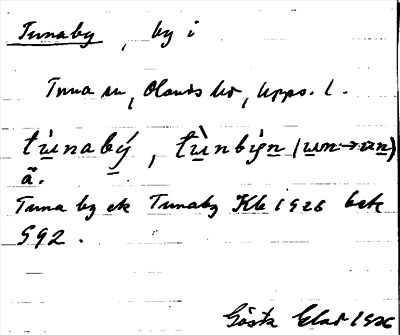 Tunaby, by i
Tuna sn, Olands hd, Upps. l.
tùnabý, tùnbyn (un→un)
ä.
Tuna by ek Tunaby Kb 1926 bek
592.
Gösta 1926